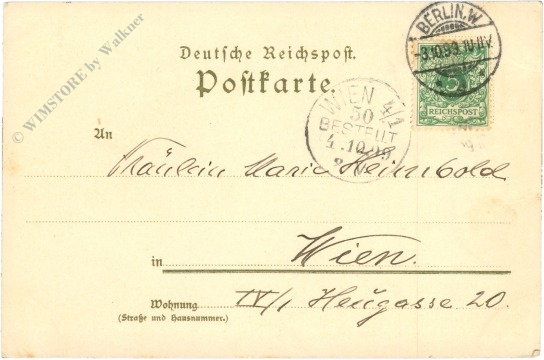 © WIMSTORE by Walkner
BERLIN. W.
-3.10.99. 10-11V.
Deutsche Reichspost.
Postkarte.
5
REICHSPOST
WIEN 4/1
50
BESTELLT
4.10.99
An
Fräulein Marie Heimbold
in Wien.
Wohnung IV/1 Heugasse 20.
(Straße und Hausnummer.)